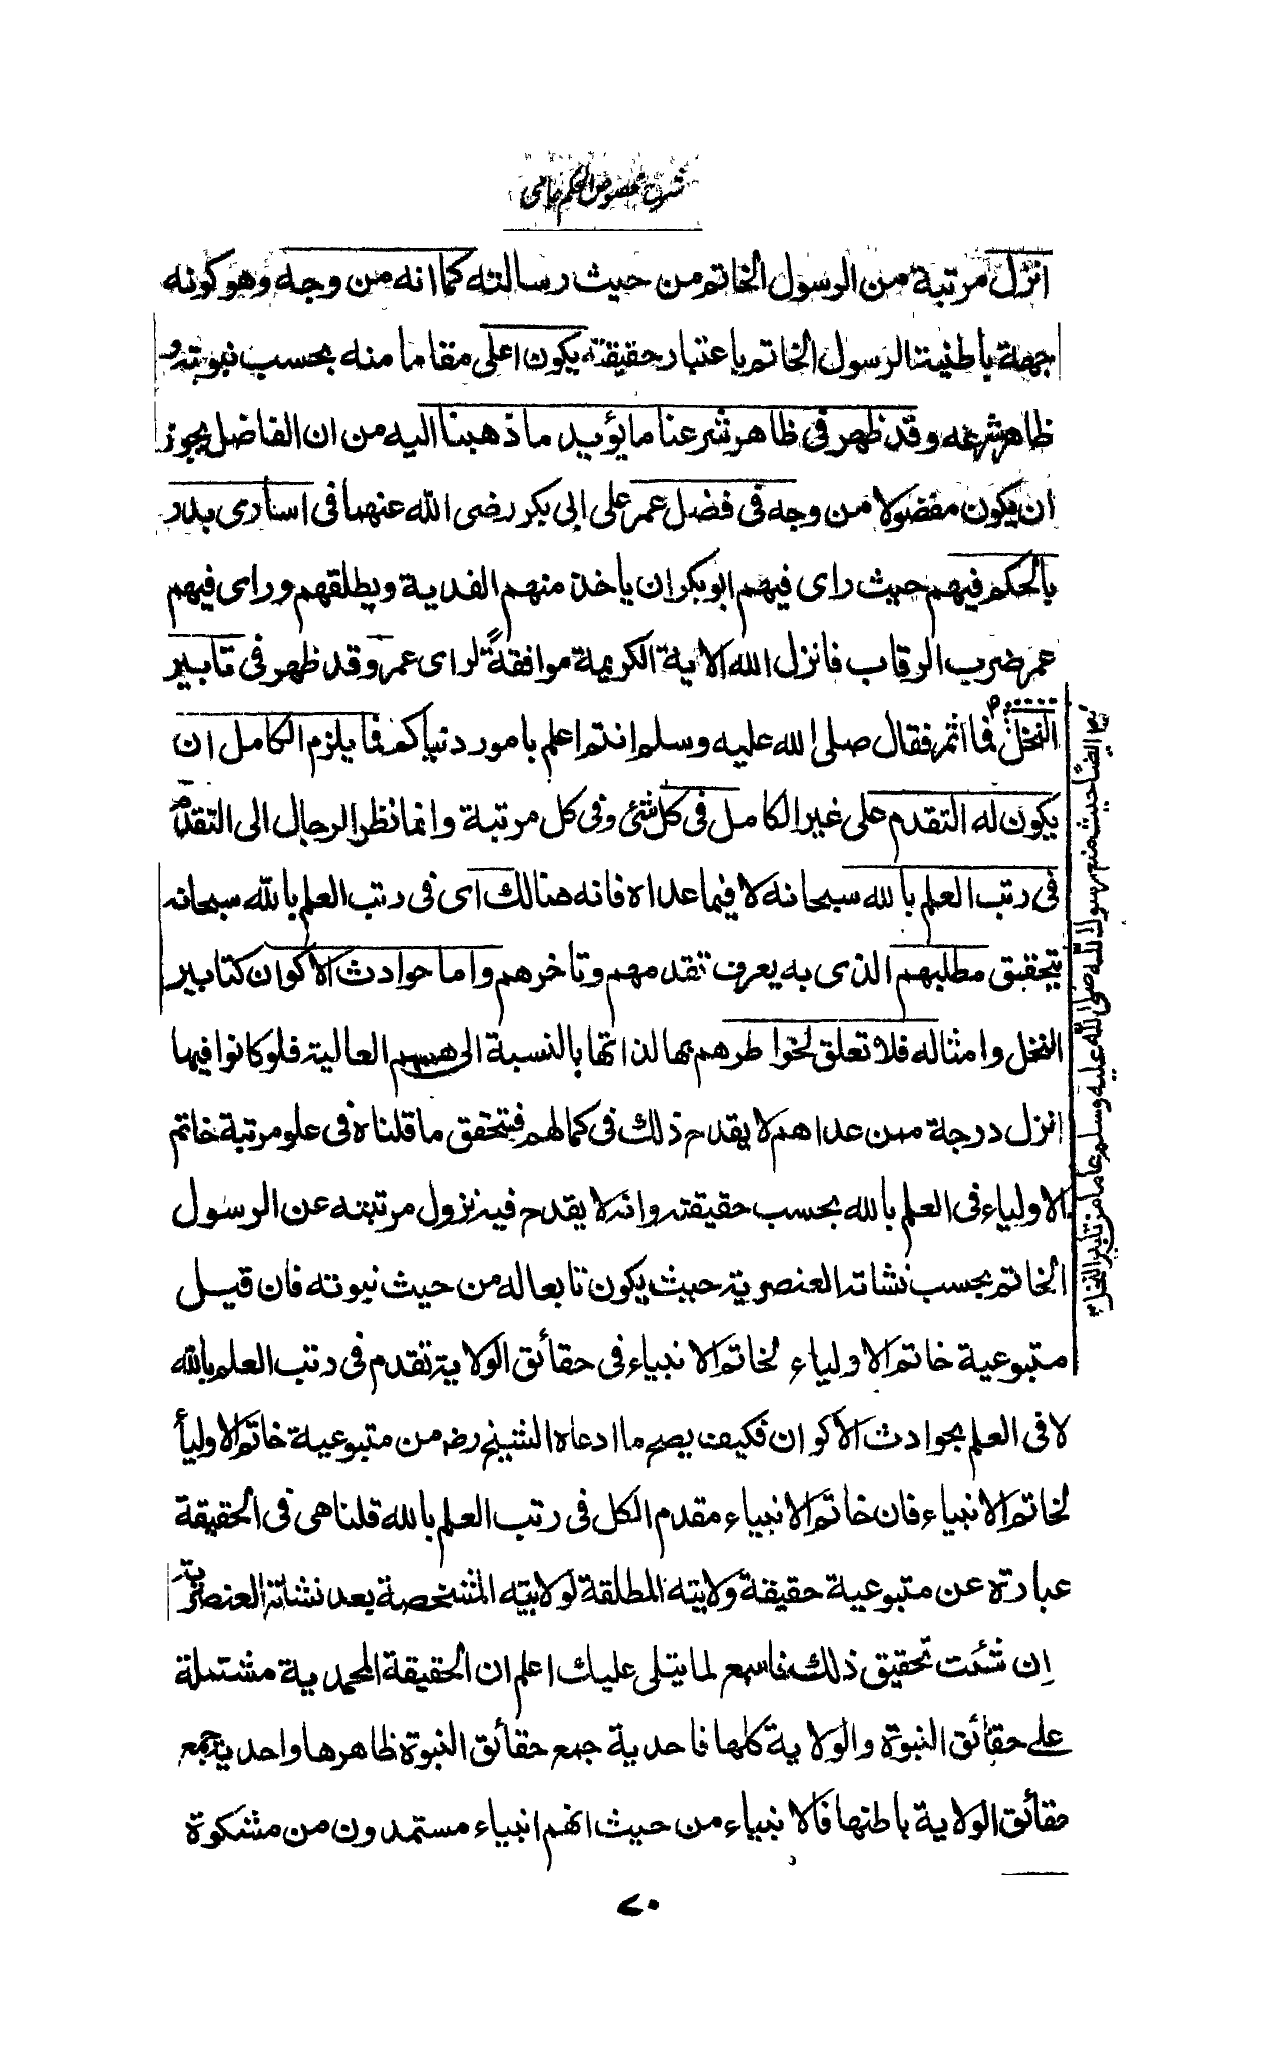 شرح فصوص الحكم جامی
انزل مرتبة من الرسول الخاتم من حيث رسالته كما انه من وجه وهو كونه
جهة باطنية الرسول الخاتم باعتبار حقيقته يكون اعلى مقاما منه بحسب نبوته و
ظاهر شرعه وقد ظهر فى ظاهر شرعنا ما يؤيد ما ذهبنا اليه من ان الفاضل يجوز
ان يكون مفضولا من وجه فى فضل عمر على ابى بكر رضى الله عنهما فى اسارى بدر
بالحكم فيهم حيث راى فيهم ابو بكر ان ياخذ منهم الفدية ويطلقهم وراى فيهم
عمر ضرب الرقاب فانزل الله الاية الكريمة موافقةً لراى عمر وقد ظهر فى تابير
النخل فما اثمر فقال صلى الله عليه وسلم انتم اعلم بامور دنياكم فما يلزم الكامل ان
يكون له التقدم على غير الكامل فى كل شئ وفى كل مرتبة وانما نظر الرجال الى التقدم
فى رتب العلم بالله سبحانه لا فيما عداه فانه هنالك اى فى رتب العلم بالله سبحانه
يتحقق مطلبهم الذى به يعرف تقدمهم وتاخرهم واما حوادث الاكوان كتابير
النخل وامثاله فلا تعلق لخواطرهم بها لذاتها بالنسبة الى هممهم العالية فلو كانوا فيها
انزل درجة ممن عداهم لا يقدح ذلك فى كمالهم فيتحقق ما قلناه فى علو مرتبة خاتم
الاولياء فى العلم بالله بحسب حقيقته وانه لا يقدح فيه نزول مرتبته عن الرسول
الخاتم بحسب نشاته العنصرية حيث يكون تابعا له من حيث نبوته فان قيل
متبوعية خاتم الاولياء لخاتم الانبياء فى حقائق الولاية تقدم فى رتب العلم بالله
لا فى العلم بحوادث الاكوان فكيف يصح ما ادعاه الشيخ رضه من متبوعية خاتم الاولياء
لخاتم الانبياء فان خاتم الانبياء مقدم الكل فى رتب العلم بالله قلنا هى فى الحقيقة
عبارة عن متبوعية حقيقة ولايته المطلقة لولايته المتشخصة بعد نشاته العنصرية
اِن شئت تحقيق ذلك فاسمع لما يتلى عليك اعلم ان الحقيقة المحمدية مشتملة
على حقائق النبوة والولاية كلها فاحدية جمع حقائق النبوة ظاهرها واحدية جمع
حقائق الولاية باطنها فالانبياء من حيث انهم انبياء مستمدون من مشكوة
٧٠
حيث منع رسول الله صلى الله عليه وسلم عاما من تابير النخل